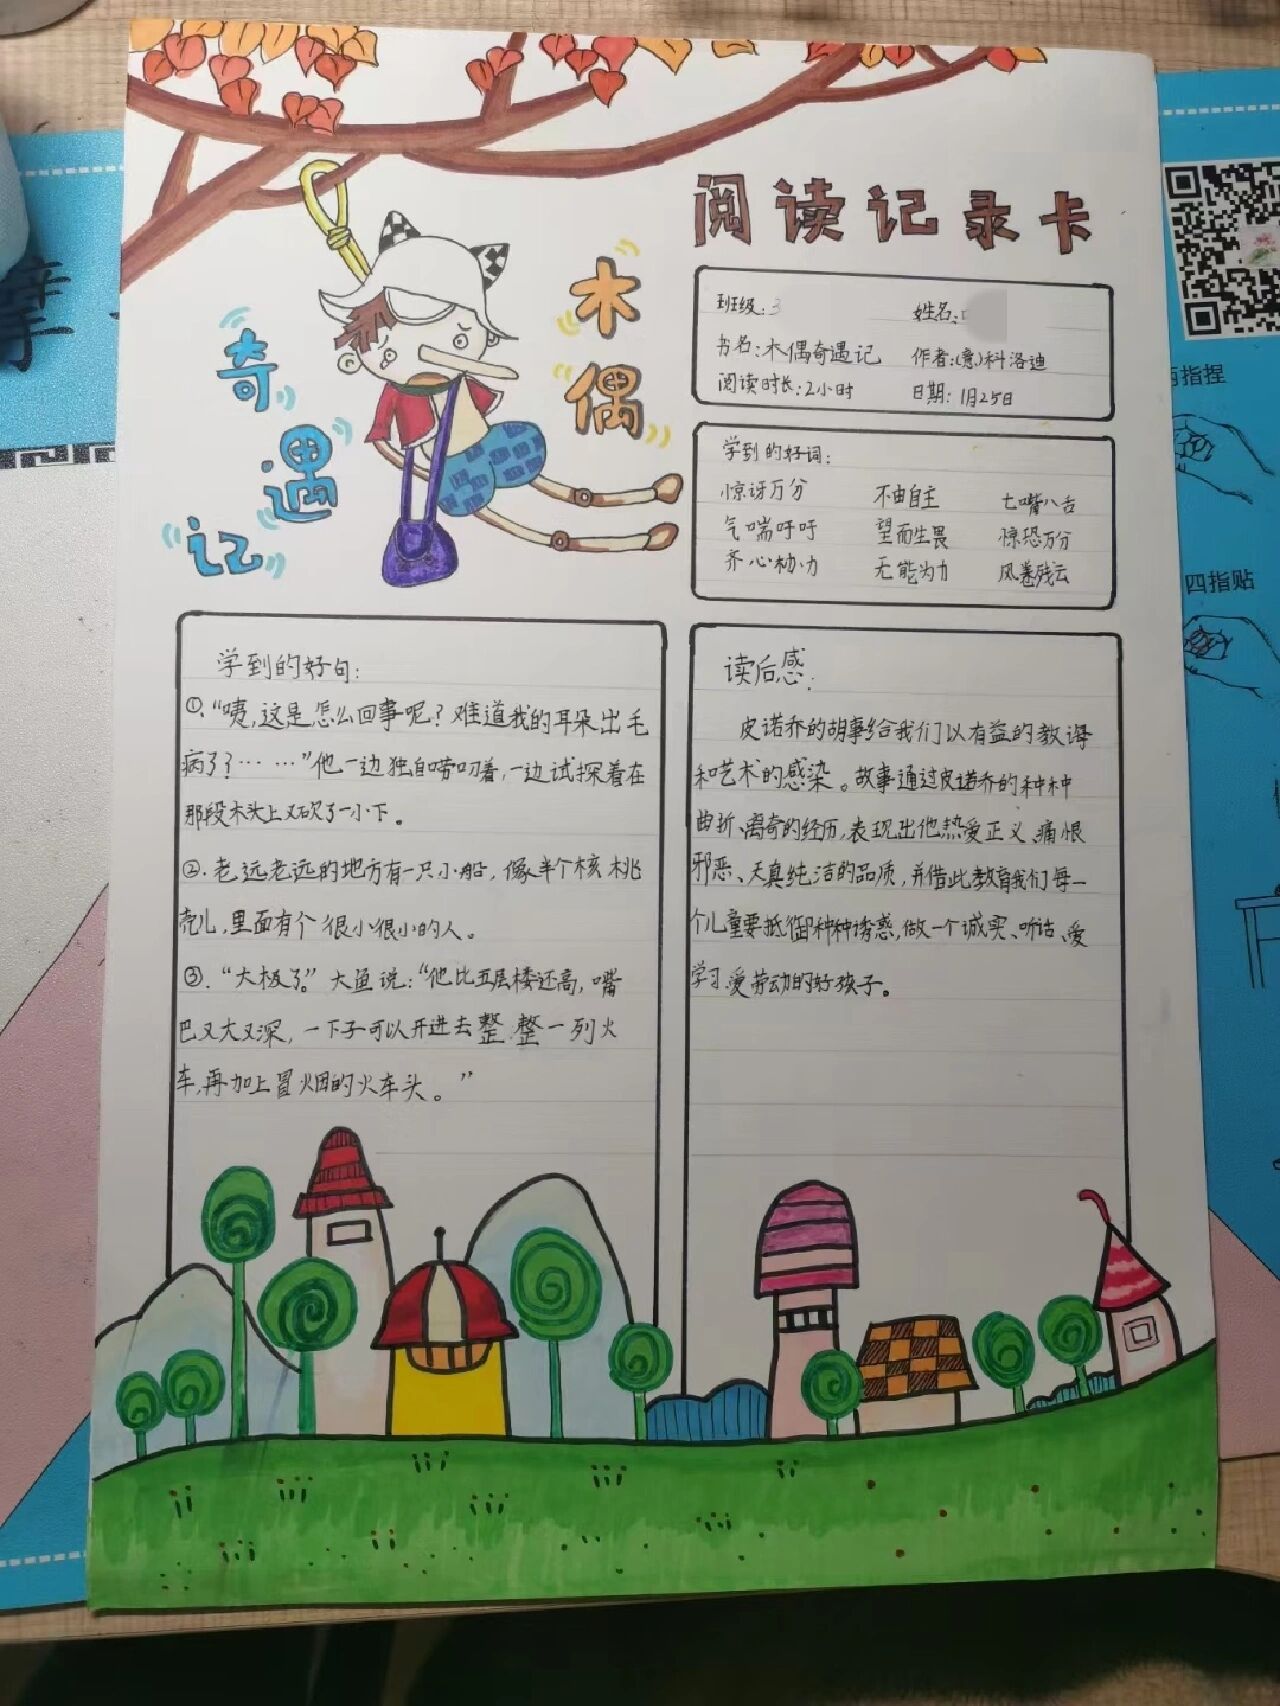 阅读记录卡
木偶
奇遇记
班级：3
姓名：
书名：木偶奇遇记
作者：(意)科洛迪
阅读时长：2小时
日期：1月25日
学到的好词：
惊讶万分 不由自主 七嘴八舌
气喘吁吁 望而生畏 惊恐万分
齐心协力 无能为力 风卷残云
学到的好句：
①．“咦，这是怎么回事呢？难道我的耳朵出毛
病了？……”他一边独自唠叨着，一边试探着在
那段木头上又砍了一小下。
②．老远老远的地方有一只小船，像半个核桃
壳儿，里面有个很小很小的人。
③．“大极了。”大鱼说：“他比五层楼还高，嘴
巴又大又深，一下子可以开进去整整一列火
车，再加上冒烟的火车头。”
读后感：
皮诺乔的故事给我们以有益的教诲
和艺术的感染。故事通过皮诺乔的种种
曲折、离奇的经历，表现出他热爱正义、痛恨
邪恶、天真纯洁的品质，并借此教育我们每一
个儿童要抵御种种诱惑，做一个诚实、听话、爱
学习、爱劳动的好孩子。
指捏
四指贴